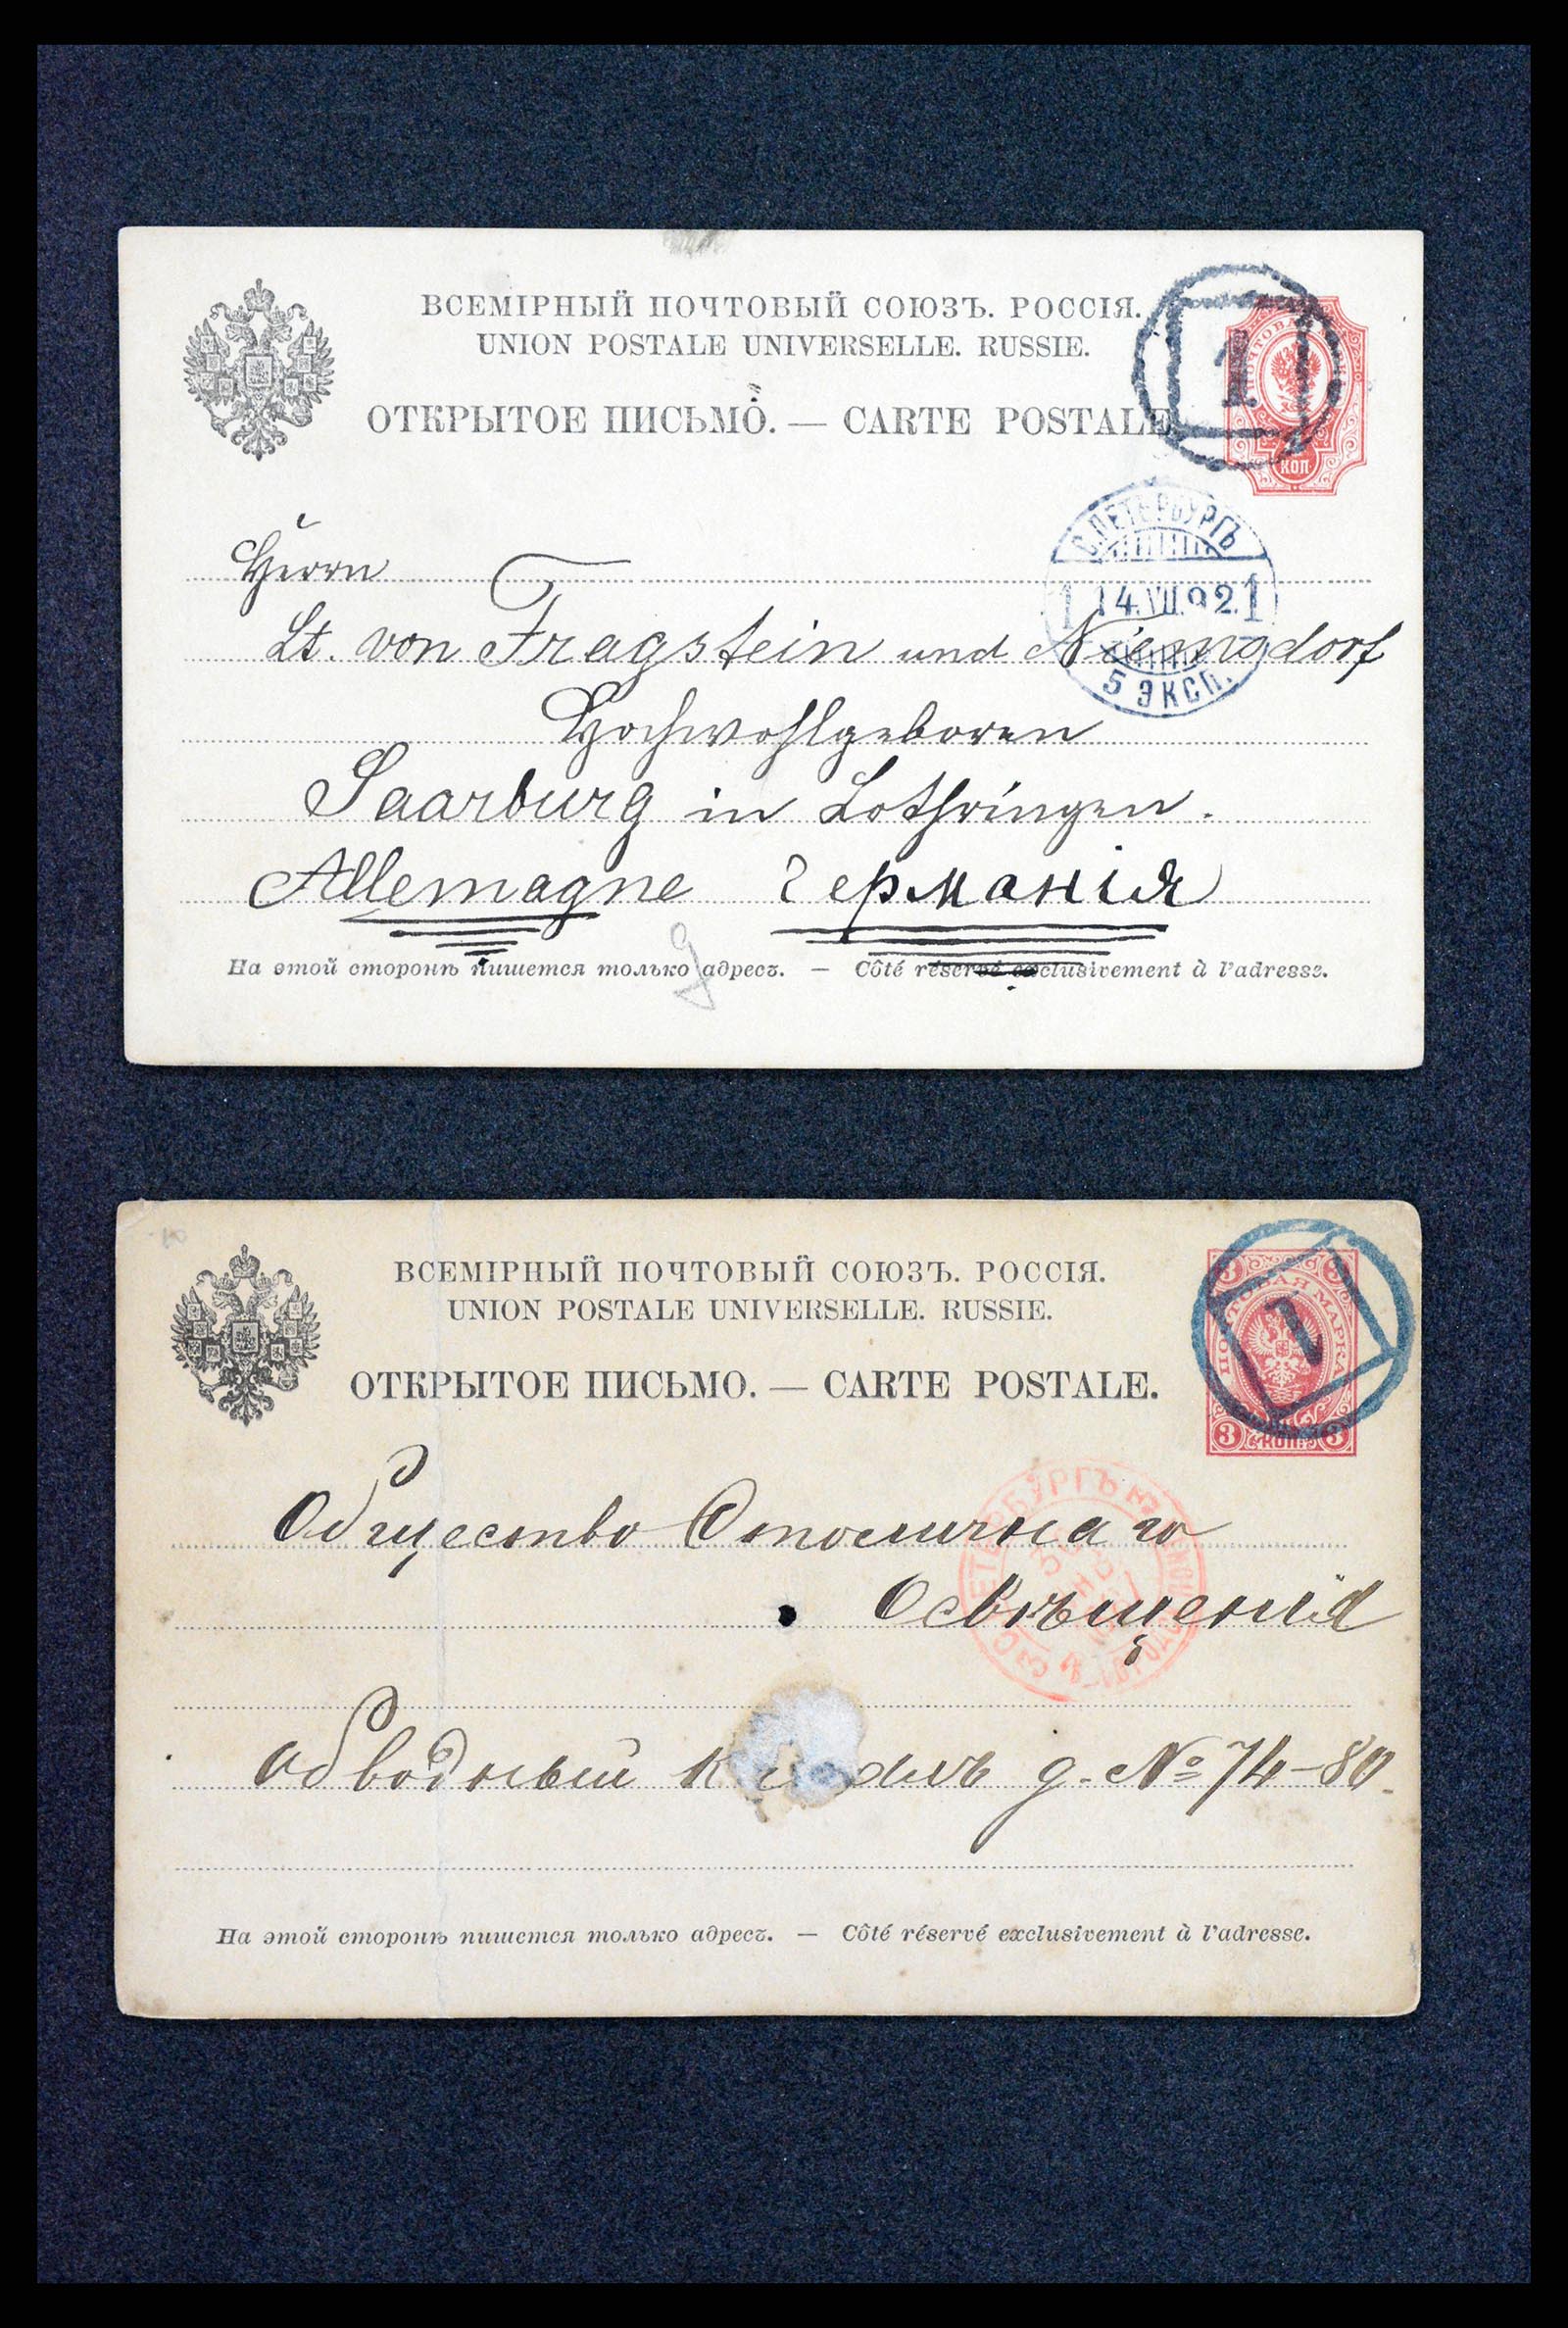 ВСЕМІРНЫЙ ПОЧТОВЫЙ СОЮЗЪ. РОССІЯ.
UNION POSTALE UNIVERSELLE. RUSSIE.
ОТКРЫТОЕ ПИСЬМО. — CARTE POSTALE.
1
КОП
С.ПЕТЕРБУРГЪ
1 14.VII.92. 1
5 ЭКСП.
Herrn
Lt. von Fragstein und Niemsdorf
Hochwohlgeboren
Saarburg in Lothringen.
Allemagne Германія
На этой сторонѣ пишется только адресъ. — Côté réservé exclusivement à l'adresse.
ВСЕМІРНЫЙ ПОЧТОВЫЙ СОЮЗЪ. РОССІЯ.
UNION POSTALE UNIVERSELLE. RUSSIE.
ОТКРЫТОЕ ПИСЬМО. — CARTE POSTALE.
ПОЧТОВАЯ МАРКА
1
3 КОП. 3
Общество Столичнаго
Освѣщенія
Обводный каналъ д. № 74-80.
На этой сторонѣ пишется только адресъ. — Côté réservé exclusivement à l'adresse.